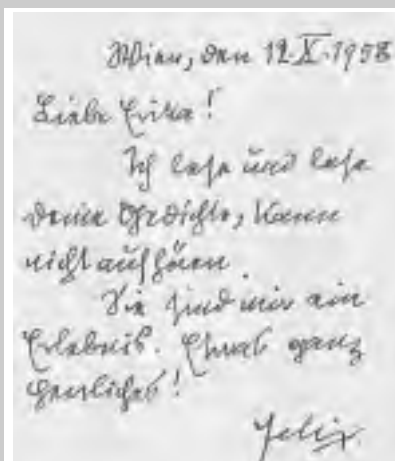 Wien, den 12.X.1958
Liebe Erika!
Ich lese und lese
deine Gedichte, kann
nicht aufhören.
Sie sind mir ein
Erlebnis. Etwas ganz
herrliches!
Felix